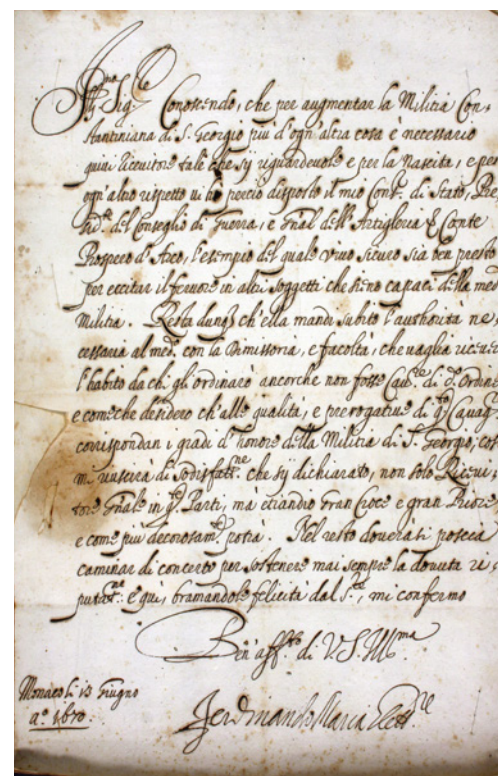 Ill.mo Sig.re Conoscendo, che per augmentar la Militia Con,
stantiniana di S. Georgio piu d'ogn'altra cosa è necessario
quivi Ricevitore tale che sij riguardevole e per la Nascita, e per
ogn'altro rispetto vi hò perciò disposto il mio Cons.e di Stato, Pre,
sid.e del Conseglio di Guerra, e Gñal dell'Artiglieria Conte
Prospero d'Arco, l'esempio del quale vivo sicuro sia ben presto
per eccitar il fervore in altri soggetti che sieno capaci della med
Militia. Resta dunq; ch'ella mandi subito l'authorità ne,
cessaria al med.o con la Dimissoria, e facoltà, che vaglia ricever
l'habito da chi gli ordinarò ancorche non fosse Cav.re di d.o Ordine
e come che desidero ch'alle qualità, e prerogative di q.to Cavag.
correspondan i gradi d'honore della Militia di S. Georgio, cosi
mi riuscirà di sodisfatt.ne che sij dichiarato, non solo Ricevi,
tore Gñale in q.e Parti, ma etiandio Gran Croce e gran Priore
e come più decorosam.e potrà. Nel resto doverassi poscia
caminar di concerto per sostenere mai sempre la dovuta ri,
putat.ne e qui, bramandole felicità dal S.re, mi confermo
Ben aff.to di V.S. Ill.ma
Monaco li 13 Giugno
a.o 1670.
Ferdinando Maria Elett.re